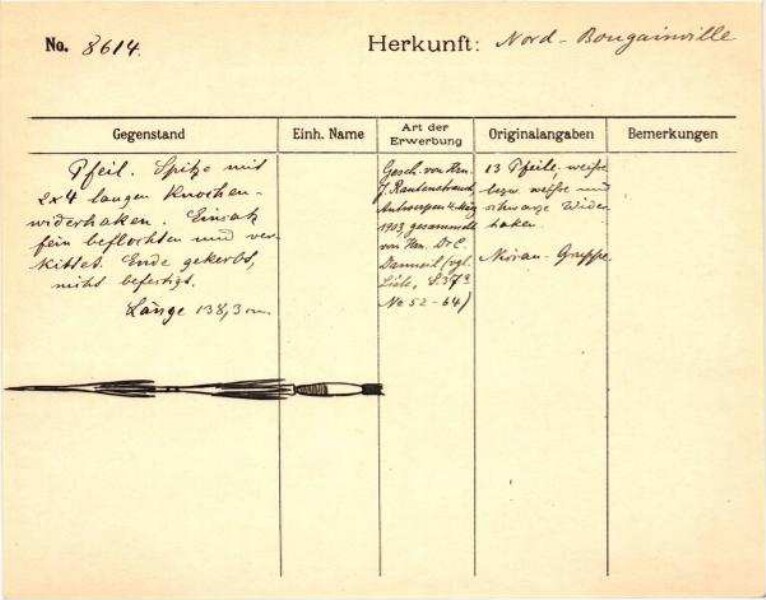 No. 8614. Herkunft: Nord - Bougainville
Gegenstand Einh. Name Art der Erwerbung Originalangaben Bemerkungen
Pfeil. Spitze mit
2x4 langen Knochen-
widerhaken. Einsatz
fein beflochten und ver-
kittet. Ende gekerbt,
nicht befestigt.
Länge 138,3 cm.
Gesch. von Hrn.
J. Rautenstrauch,
Antwerpen 4. März
1903, gesammelt
von Hrn. Dr C.
Danneil (vgl.
Liste, S.
No 52-64)
13 Pfeile, weiße
bzw. weiße und
schwarze Wider
haken.
Nissan - Gruppe.